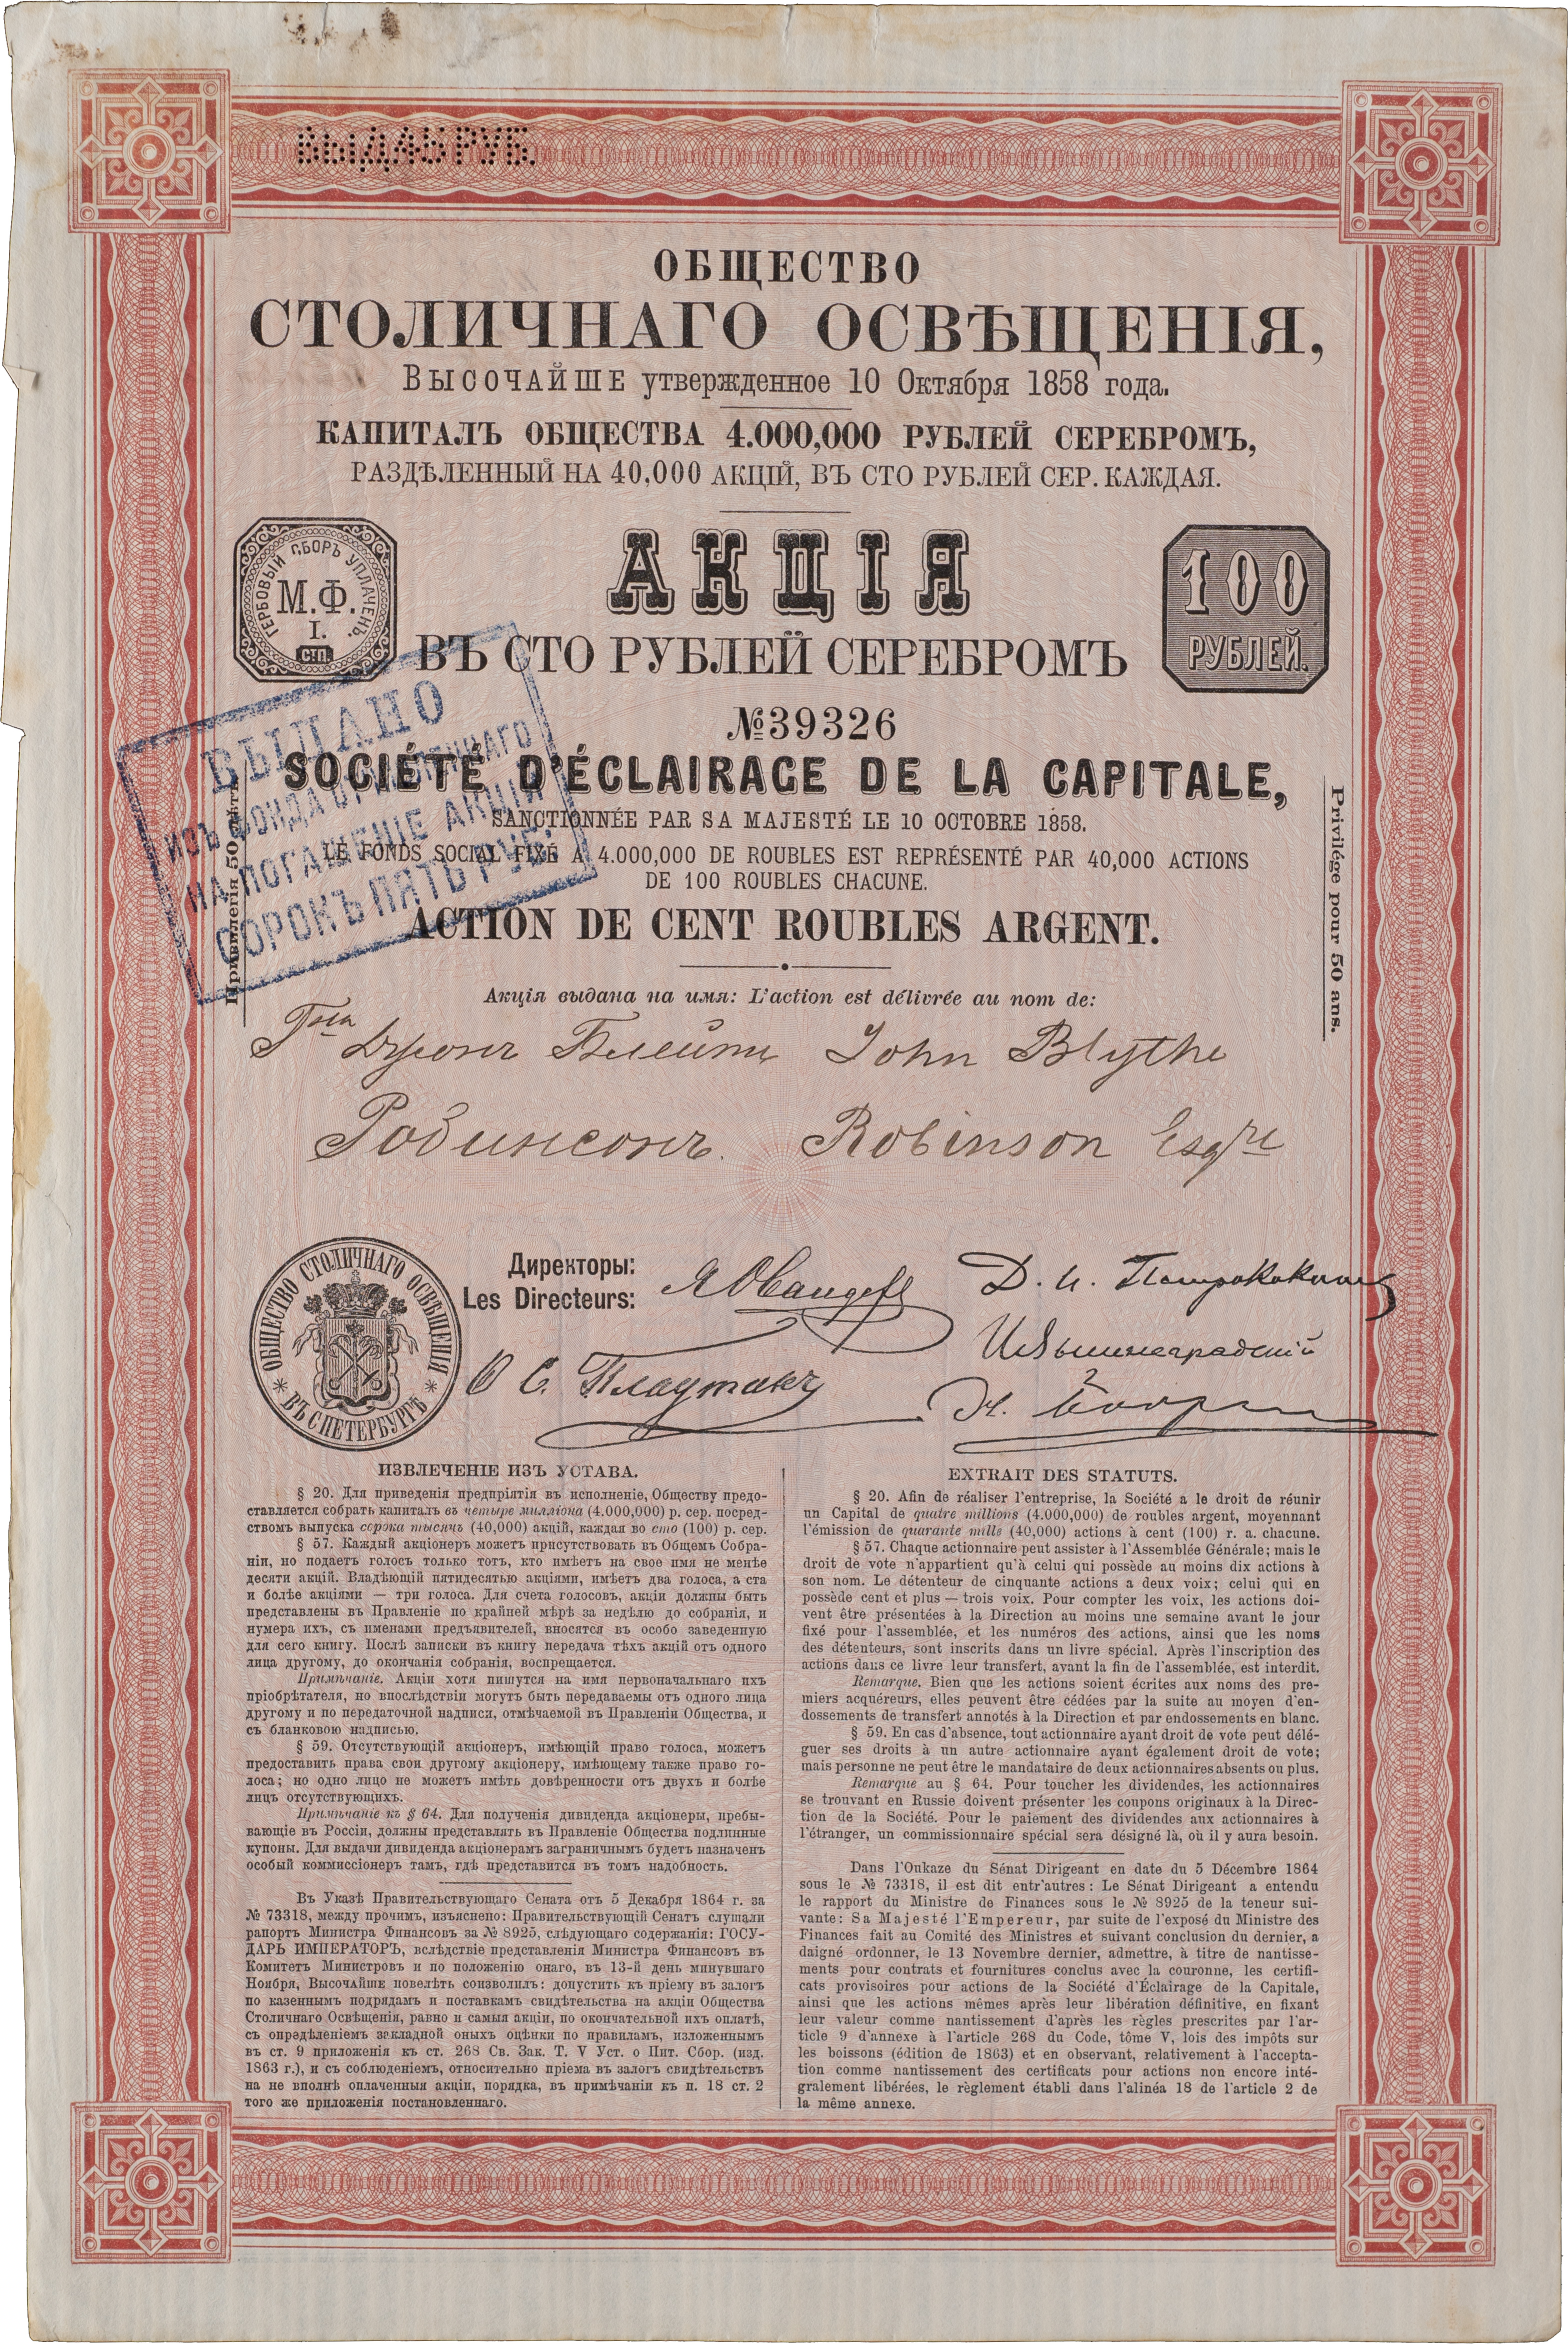 ВЫД. 45 РУБ.
ОБЩЕСТВО
СТОЛИЧНАГО ОСВѢЩЕНІЯ,
ВЫСОЧАЙШЕ утвержденное 10 Октября 1858 года.
КАПИТАЛЪ ОБЩЕСТВА 4.000,000 РУБЛЕЙ СЕРЕБРОМЪ,
РАЗДѢЛЕННЫЙ НА 40,000 АКЦІЙ, ВЪ СТО РУБЛЕЙ СЕР. КАЖДАЯ.
ГЕРБОВЫЙ СБОРЪ УПЛАЧЕНЪ.
М.Ф.
I.
СТП.
АКЦІЯ
100
РУБЛЕЙ.
ВЪ СТО РУБЛЕЙ СЕРЕБРОМЪ
№39326
ВЫДАНО
ИЗЪ ФОНДА
НА ПОГАШЕНІЕ АКЦІЙ
СОРОКЪ ПЯТЬ РУБ.
SOCIÉTÉ D'ÉCLAIRAGE DE LA CAPITALE,
SANCTIONNÉE PAR SA MAJESTÉ LE 10 OCTOBRE 1858.
LE FONDS SOCIAL FIXÉ A 4.000,000 DE ROUBLES EST REPRÉSENTÉ PAR 40,000 ACTIONS
DE 100 ROUBLES CHACUNE.
ACTION DE CENT ROUBLES ARGENT.
Привилегія 50 лѣтъ.
Privilége pour 50 ans.
Акція выдана на имя: L'action est délivrée au nom de:
Джонъ Блейтъ John Blythe
Робинсонъ. Robinson Esqre
ОБЩЕСТВО СТОЛИЧНАГО ОСВѢЩЕНІЯ
ВЪ СПЕТЕРБУРГѢ
Директоры:
Les Directeurs:
ИЗВЛЕЧЕНІЕ ИЗЪ УСТАВА.
§ 20. Для приведенія предпріятія въ исполненіе, Обществу предо-
ставляется собрать капиталъ въ четыре милліона (4.000,000) р. сер. посред-
ствомъ выпуска сорока тысячъ (40,000) акцій, каждая во сто (100) р. сер.
§ 57. Каждый акціонеръ можетъ присутствовать въ Общемъ Собра-
ніи, но подаетъ голосъ только тотъ, кто имѣетъ на свое имя не менѣе
десяти акцій. Владѣющій пятидесятью акціями, имѣетъ два голоса, а ста
и болѣе акціями — три голоса. Для счета голосовъ, акціи должны быть
представлены въ Правленіе по крайней мѣрѣ за недѣлю до собранія, и
нумера ихъ, съ именами предъявителей, вносятся въ особо заведенную
для сего книгу. Послѣ записки въ книгу передача тѣхъ акцій отъ одного
лица другому, до окончанія собранія, воспрещается.
Примѣчаніе. Акціи хотя пишутся на имя первоначальнаго ихъ
пріобрѣтателя, но впослѣдствіи могутъ быть передаваемы отъ одного лица
другому и по передаточной надписи, отмѣчаемой въ Правленіи Общества, и
съ бланковою надписью.
§ 59. Отсутствующій акціонеръ, имѣющій право голоса, можетъ
предоставить права свои другому акціонеру, имѣющему также право го-
лоса; но одно лицо не можетъ имѣть довѣренности отъ двухъ и болѣе
лицъ отсутствующихъ.
Примѣчаніе къ § 64. Для полученія дивиденда акціонеры, пребы-
вающіе въ Россіи, должны представлять въ Правленіе Общества подлинные
купоны. Для выдачи дивиденда акціонерамъ заграничнымъ будетъ назначенъ
особый коммиссіонеръ тамъ, гдѣ представится въ томъ надобность.
Въ Указѣ Правительствующаго Сената отъ 5 Декабря 1864 г. за
№ 73318, между прочимъ, изъяснено: Правительствующій Сенатъ слушали
рапортъ Министра Финансовъ за № 8925, слѣдующаго содержанія: ГОСУ-
ДАРЬ ИМПЕРАТОРЪ, вслѣдствіе представленія Министра Финансовъ въ
Комитетъ Министровъ и по положенію онаго, въ 13-й день минувшаго
Ноября, ВЫСОЧАЙШЕ повелѣть соизволилъ: допустить къ пріему въ залогъ
по казеннымъ подрядамъ и поставкамъ свидѣтельства на акціи Общества
Столичнаго Освѣщенія, равно и самыя акціи, по окончательной ихъ оплатѣ,
съ опредѣленіемъ закладной оныхъ оцѣнки по правиламъ, изложеннымъ
въ ст. 9 приложенія къ ст. 268 Св. Зак. Т. V Уст. о Пит. Сбор. (изд.
1863 г.), и съ соблюденіемъ, относительно пріема въ залогъ свидѣтельствъ
на не вполнѣ оплаченныя акціи, порядка, въ примѣчаніи къ п. 18 ст. 2
того же приложенія постановленнаго.
EXTRAIT DES STATUTS.
§ 20. Afin de réaliser l'entreprise, la Société a le droit de réunir
un Capital de quatre millions (4.000,000) de roubles argent, moyennant
l'émission de quarante mille (40,000) actions à cent (100) r. a. chacune.
§ 57. Chaque actionnaire peut assister à l'Assemblée Générale; mais le
droit de vote n'appartient qu'à celui qui possède au moins dix actions à
son nom. Le détenteur de cinquante actions a deux voix; celui qui en
possède cent et plus — trois voix. Pour compter les voix, les actions doi-
vent être présentées à la Direction au moins une semaine avant le jour
fixé pour l'assemblée, et les numéros des actions, ainsi que les noms
des détenteurs, sont inscrits dans un livre spécial. Après l'inscription des
actions dans ce livre leur transfert, avant la fin de l'assemblée, est interdit.
Remarque. Bien que les actions soient écrites aux noms des pre-
miers acquéreurs, elles peuvent être cédées par la suite au moyen d'en-
dossements de transfert annotés à la Direction et par endossements en blanc.
§ 59. En cas d'absence, tout actionnaire ayant droit de vote peut délé-
guer ses droits à un autre actionnaire ayant également droit de vote;
mais personne ne peut être le mandataire de deux actionnaires absents ou plus.
Remarque au § 64. Pour toucher les dividendes, les actionnaires
se trouvant en Russie doivent présenter les coupons originaux à la Direc-
tion de la Société. Pour le paiement des dividendes aux actionnaires à
l'étranger, un commissionnaire spécial sera désigné là, où il y aura besoin.
Dans l'Oukaze du Sénat Dirigeant en date du 5 Décembre 1864
sous le № 73318, il est dit entr'autres: Le Sénat Dirigeant a entendu
le rapport du Ministre de Finances sous le № 8925 de la teneur sui-
vante: Sa Majesté l'Empereur, par suite de l'exposé du Ministre des
Finances fait au Comité des Ministres et suivant conclusion du dernier, a
daigné ordonner, le 13 Novembre dernier, admettre, à titre de nantisse-
ments pour contrats et fournitures conclus avec la couronne, les certifi-
cats provisoires pour actions de la Société d'Éclairage de la Capitale,
ainsi que les actions mêmes après leur libération définitive, en fixant
leur valeur comme nantissement d'après les règles prescrites par l'ar-
ticle 9 d'annexe à l'article 268 du Code, tôme V, lois des impôts sur
les boissons (édition de 1863) et en observant, relativement à l'accepta-
tion comme nantissement des certificats pour actions non encore inté-
gralement libérées, le règlement établi dans l'alinéa 18 de l'article 2 de
la même annexe.